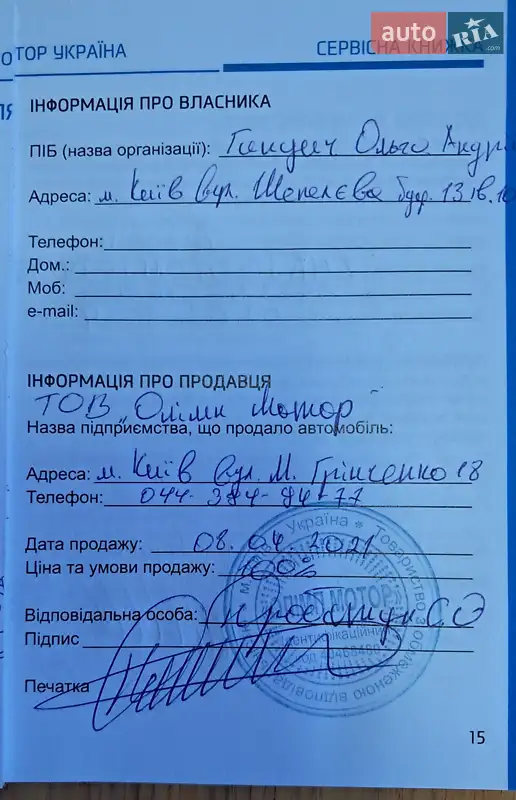 auto RIA .com
ТОР УКРАЇНА
СЕРВІСНА КНИЖКА
ІНФОРМАЦІЯ ПРО ВЛАСНИКА
ПІБ (назва організації): Ольга
Адреса: м. Київ вул. Шепелєва буд. 13 кв.
Телефон:
Дом.:
Моб:
e-mail:
ІНФОРМАЦІЯ ПРО ПРОДАВЦЯ
ТОВ „Олімп Мотор"
Назва підприємства, що продало автомобіль:
Адреса: м. Київ вул. М. Грінченко 18
Телефон: 044-384-94-77
Дата продажу: 08.04.2021
Ціна та умови продажу: 100%
Відповідальна особа:
Підпис
Печатка
Україна * Товариство з обмеженою відповідальністю
ОЛІМП МОТОР
Ідентифікаційний
код
15